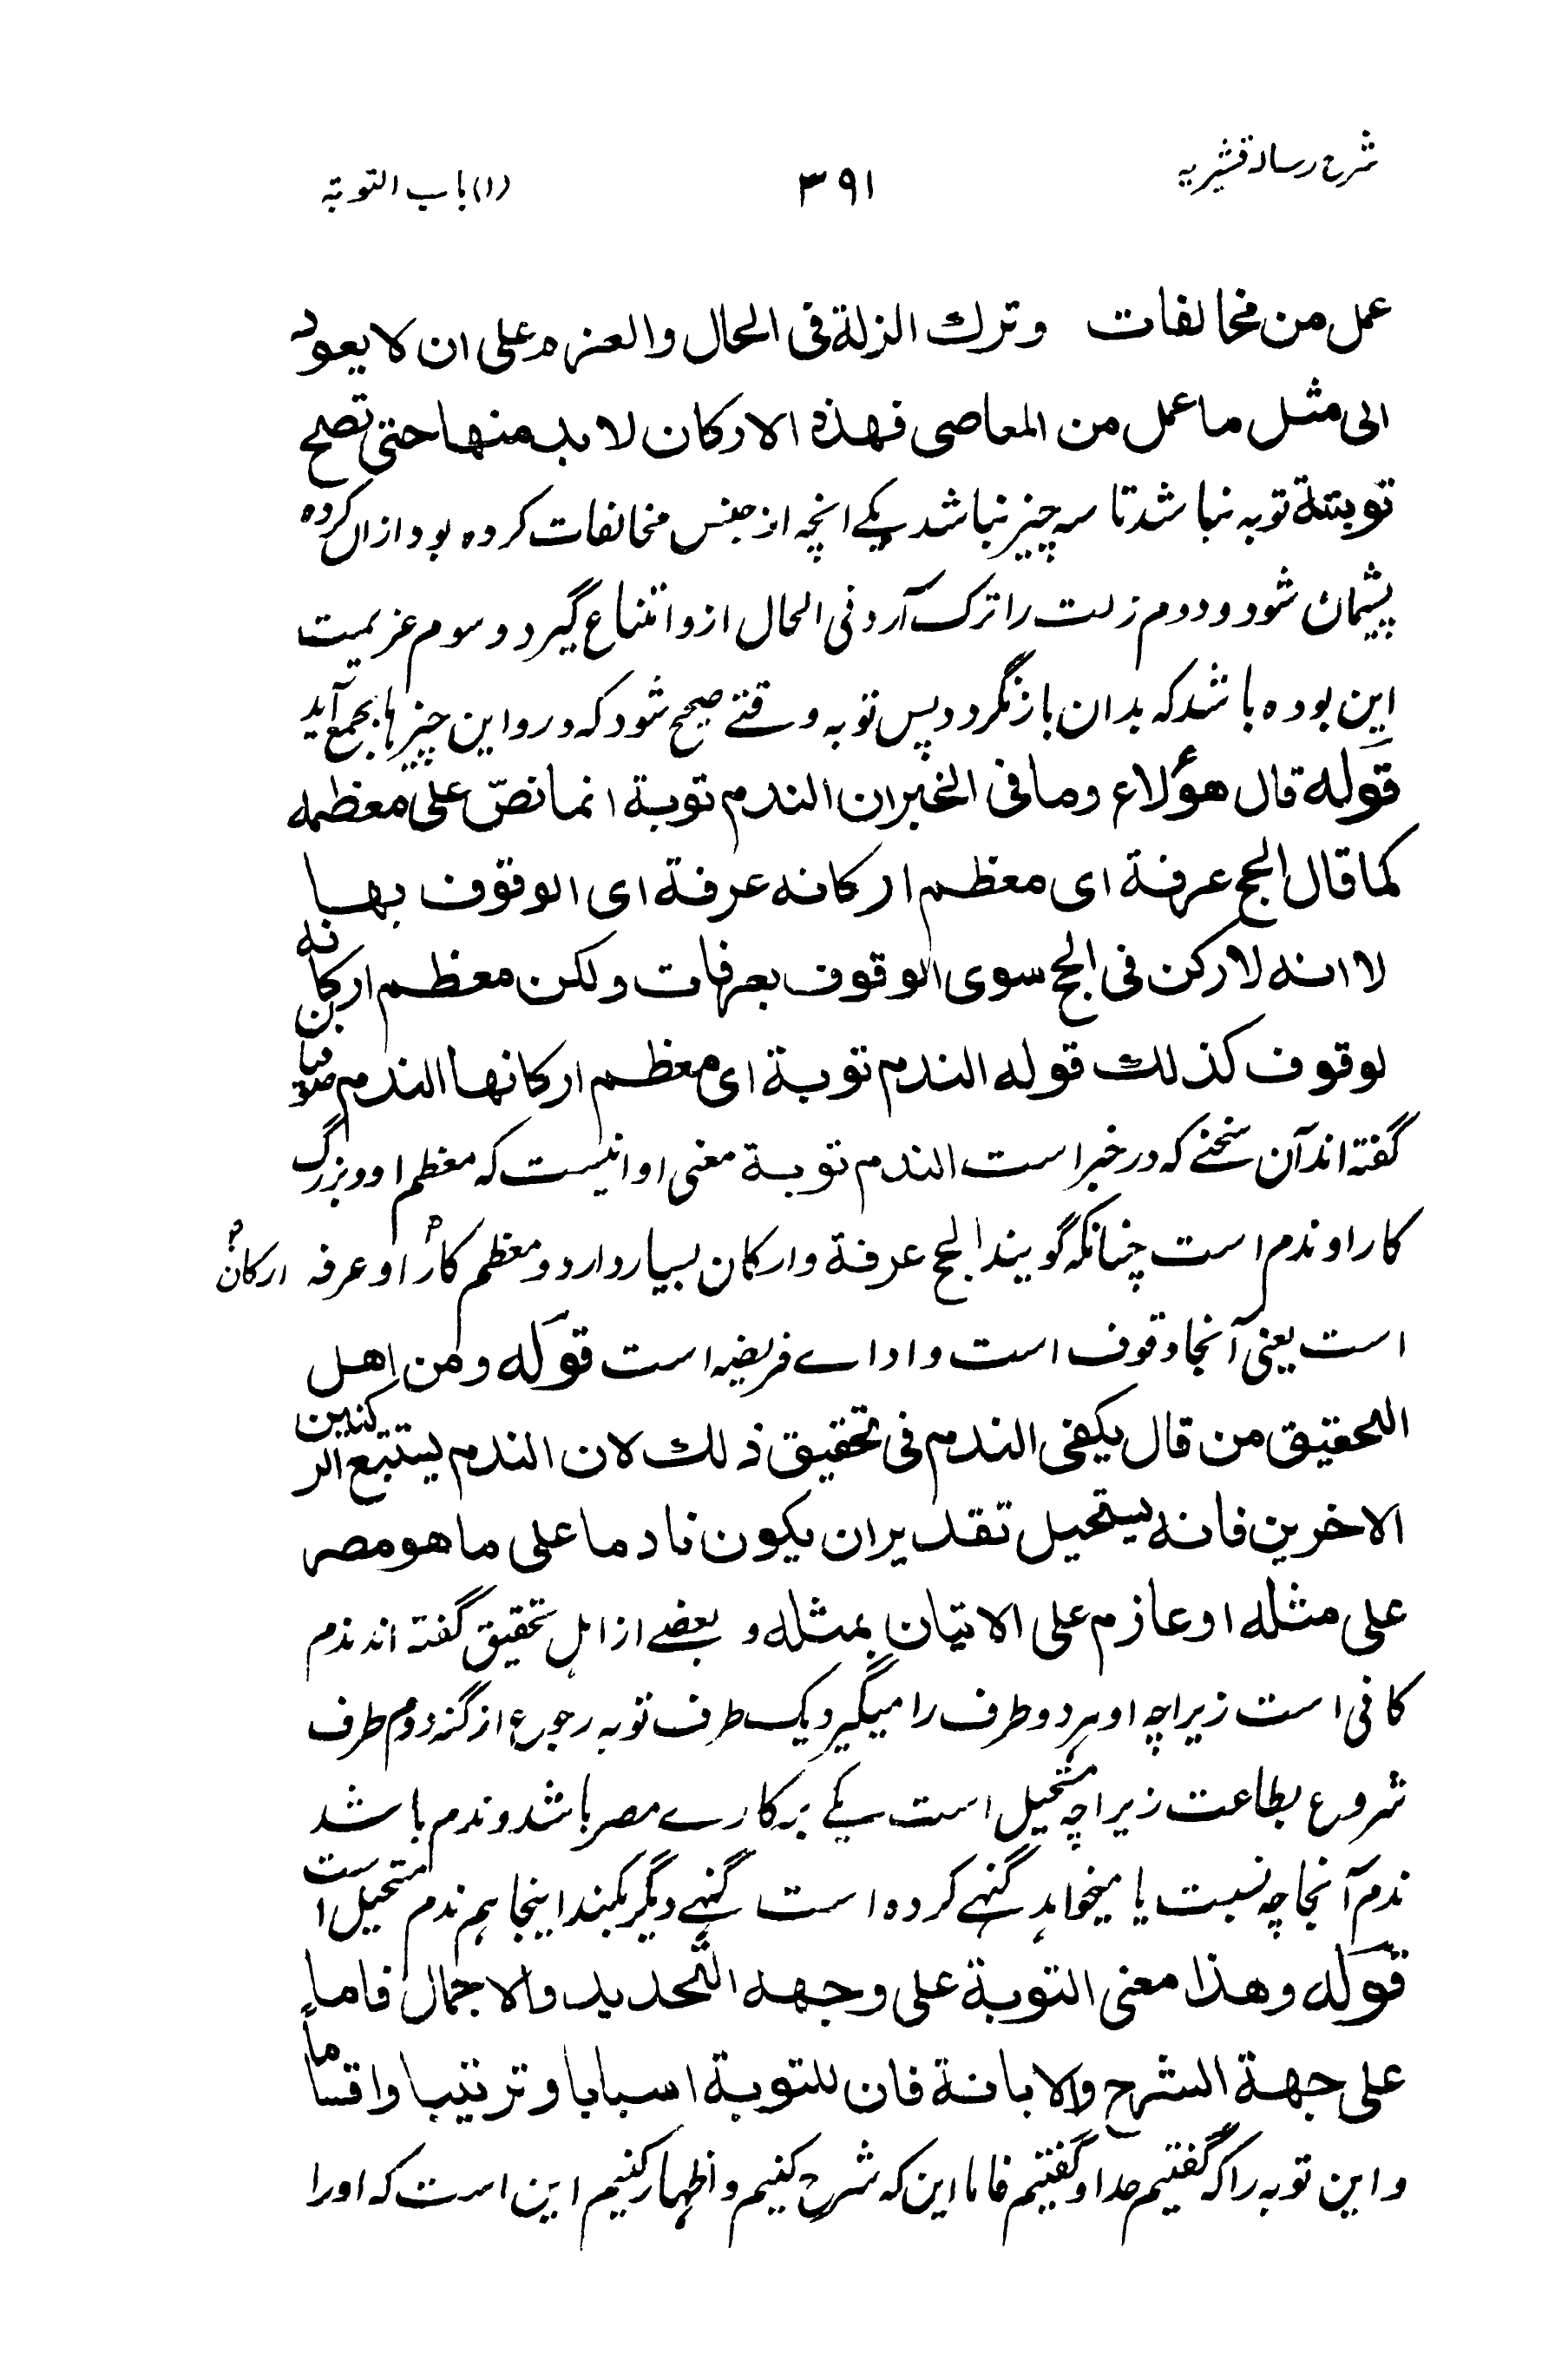 شرح رسالہ قشیریہ
۳۹۱
(۱) باب التوبتہ
عمل من مخالفات وترك الزلة فى الحال والعزم على ان لا يعود
الى مثل ما عمل من المعاصى فهذه الاركان لا بد منها حتى تصح
توبتة توبہ نباشد تا سہ چیز نباشد یکے انچہ از جنس مخالفات کردہ بود ازاں کردہ
پشیمان شود و دوم زلت را ترک آرد فی الحال ازو امتناع گیرد و سوم عزیمیت
این بودہ باشد کہ بدان باز نگردد پس توبہ وقتے صحیح شود کہ درو این چیزہا بجمع آید
قوله قال هؤلاء وما فى الخبر ان الندم توبة انما نصّ على معظمه
كما قال الحج عرفة اى معظم اركانه عرفة اى الوقوف بها
لا انه لا ركن فى الحج سوى الوقوف بعرفات ولكن معظم اركانه
لوقوف كذلك قوله الندم توبة اى معظم اركانها الندم
گفتہ اند آن سخنے کہ در خبر است الندم توبة معنی او انیست کہ معظم او و بزرگ
کار او ندم است چنانکہ گویند الحج عرفة و ارکان بسیار دارد و معظم کار او عرفہ ارکان
است یعنی آنجا وقوف است و اداے فریضہ است قوله ومن اهل
التحقيق من قال يكفى الندم فى تحقيق ذلك لان الندم يستتبع الركنين
الاخرين فانه يستحيل تقدير ان يكون نادما على ما هو مصر
على مثله او عازم على الاتيان بمثله و بعضے از اہل تحقیق گفتہ اند ندم
کافی است زیراچہ او ہر دو طرف را میگیرد یک طرف توبہ رجوع از گنہ دوم طرف
شروع بطاعت زیراچہ مستحیل است یکے بر کارے مصر باشد و ندم باشد
ندم آنجا چہ نسبت یا میخواہد گنہے کردہ است گنہے دیگر بکند اینجا ہم ندم مستحیل است
قوله وهذا معنى التوبة على وجهه التحديد والاجمال فاما
على جهة الشرح والابانة فان للتوبة اسبابا وترتيبا واقساما
و این توبہ را کہ گفتیم حد او گفتیم فاما این کہ شرح کنیم و اظہار کنیم این است کہ اورا